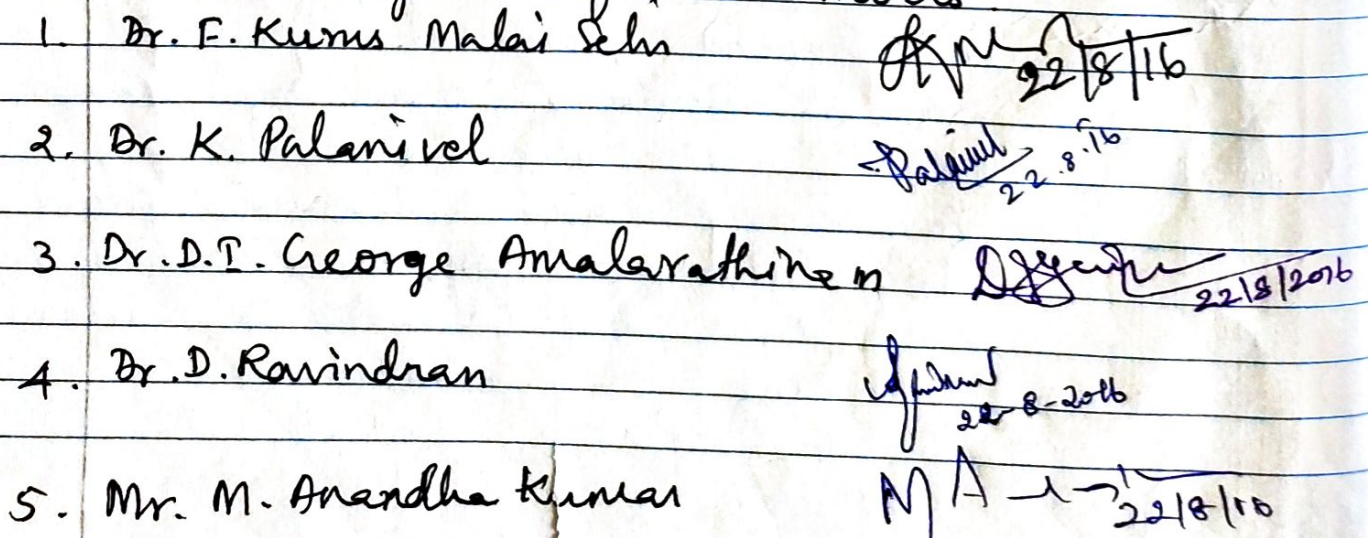 1. Dr. E. Kurus Malai Selvi 22/8/16
2. Dr. K. Palanivel Palanivel 22.8.16
3. Dr. D.I. George Amalarathinam 22/8/2016
4. Dr. D. Ravindran 22-8-2016
5. Mr. M. Anandha Kumar M A 22/8/16